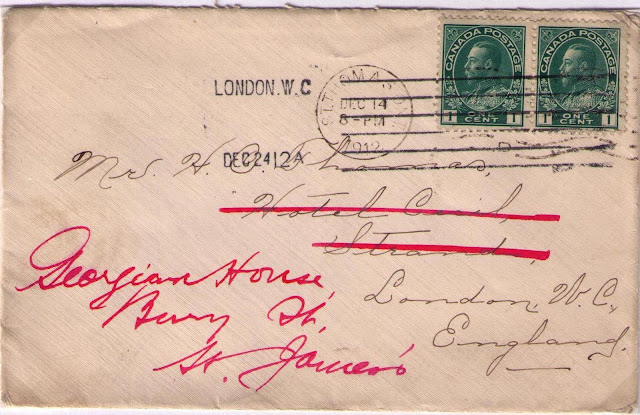 CANADA POSTAGE
1 ONE CENT 1
CANADA POSTAGE
1 ONE CENT 1
LONDON. W.C
DEC 24 12 A
ST. THOMAS
DEC 14
8 - PM
1912
Mrs. H. E. Thomas,
Hotel Cecil,
Strand,
London, W.C.,
England.
Georgian House,
Bury St,
St. James's